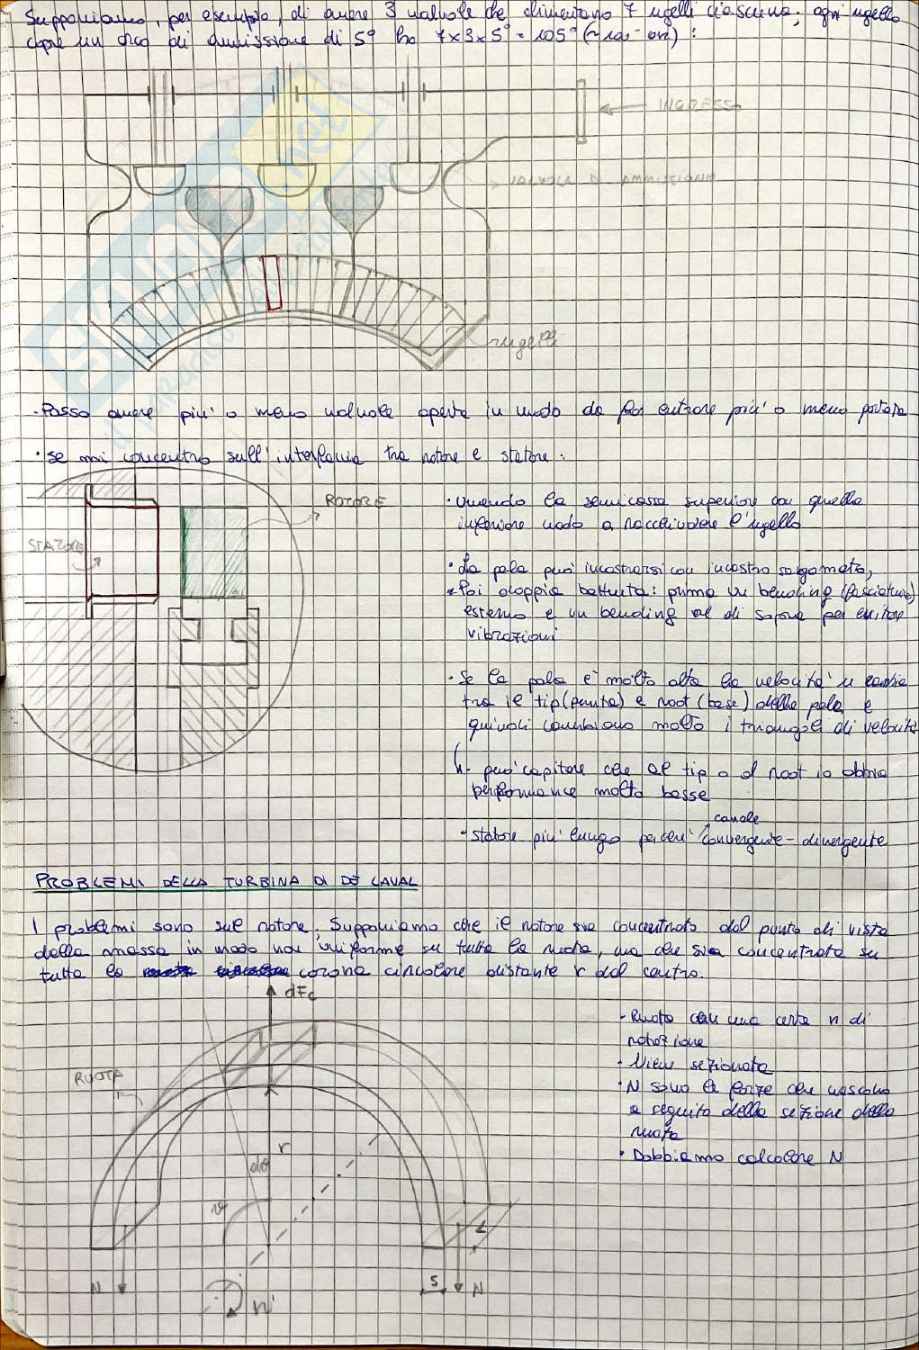 Supponiamo, per esempio, di avere 3 valvole che alimentano 7 ugelli ciascuna, ogni ugello
copre un arco di ammissione di 5° ho 7x3x5° = 105°
INGRESSO
VALVOLA DI AMMISSIONE
ugelli
· Posso avere piu' o meno valvole aperte in modo da far entrare piu' o meno portata
· se mi concentro sull'interfaccia tra rotore e statore:
ROTORE
STATORE
· unendo la semicassa superiore con quella
inferiore vado a racchiudere l'ugello
· La pala può incastrarsi con incastro sagomato,
· Poi doppia battuta: prima un bending (fasciatura)
esterno e un bending al di sopra per evitare
vibrazioni
· Se la pala è molto alta la velocita' u cambia
tra il tip (punta) e root (base) della pala e
quindi cambiano molto i triangoli di velocità
può capitare che al tip o al root io abbia
performance molto basse
· statore piu' lungo perche' canale convergente-divergente
PROBLEMI DELLA TURBINA DI DE LAVAL
I problemi sono sul rotore. Supponiamo che il rotore sia concentrato dal punto di vista
della massa in modo non uniforme su tutta la ruota, ma che sia concentrata su
tutta la corona circolare distante r dal centro.
dFc
RUOTA
r
dθ
θ
N
n
S
N
L
· Ruota con una certa n di
rotazione
· View sezionata
· N sono le forze che nascono
a seguito della sezione della
ruota
· Dobbiamo calcolare N